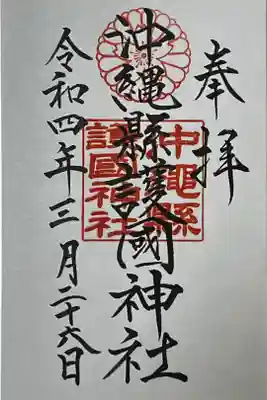 奉拝
沖縄縣護國神社
令和四年三月二十六日
沖縄縣
護國神社